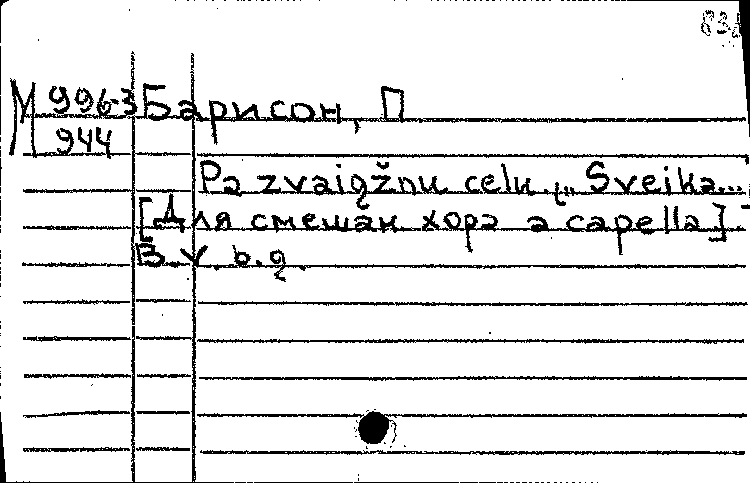 М 996-3 Барисон, П
944
Pa zvaigžņu ceļu. „Sveika...
[Для смешан хора a capella].
B.V. b.g.